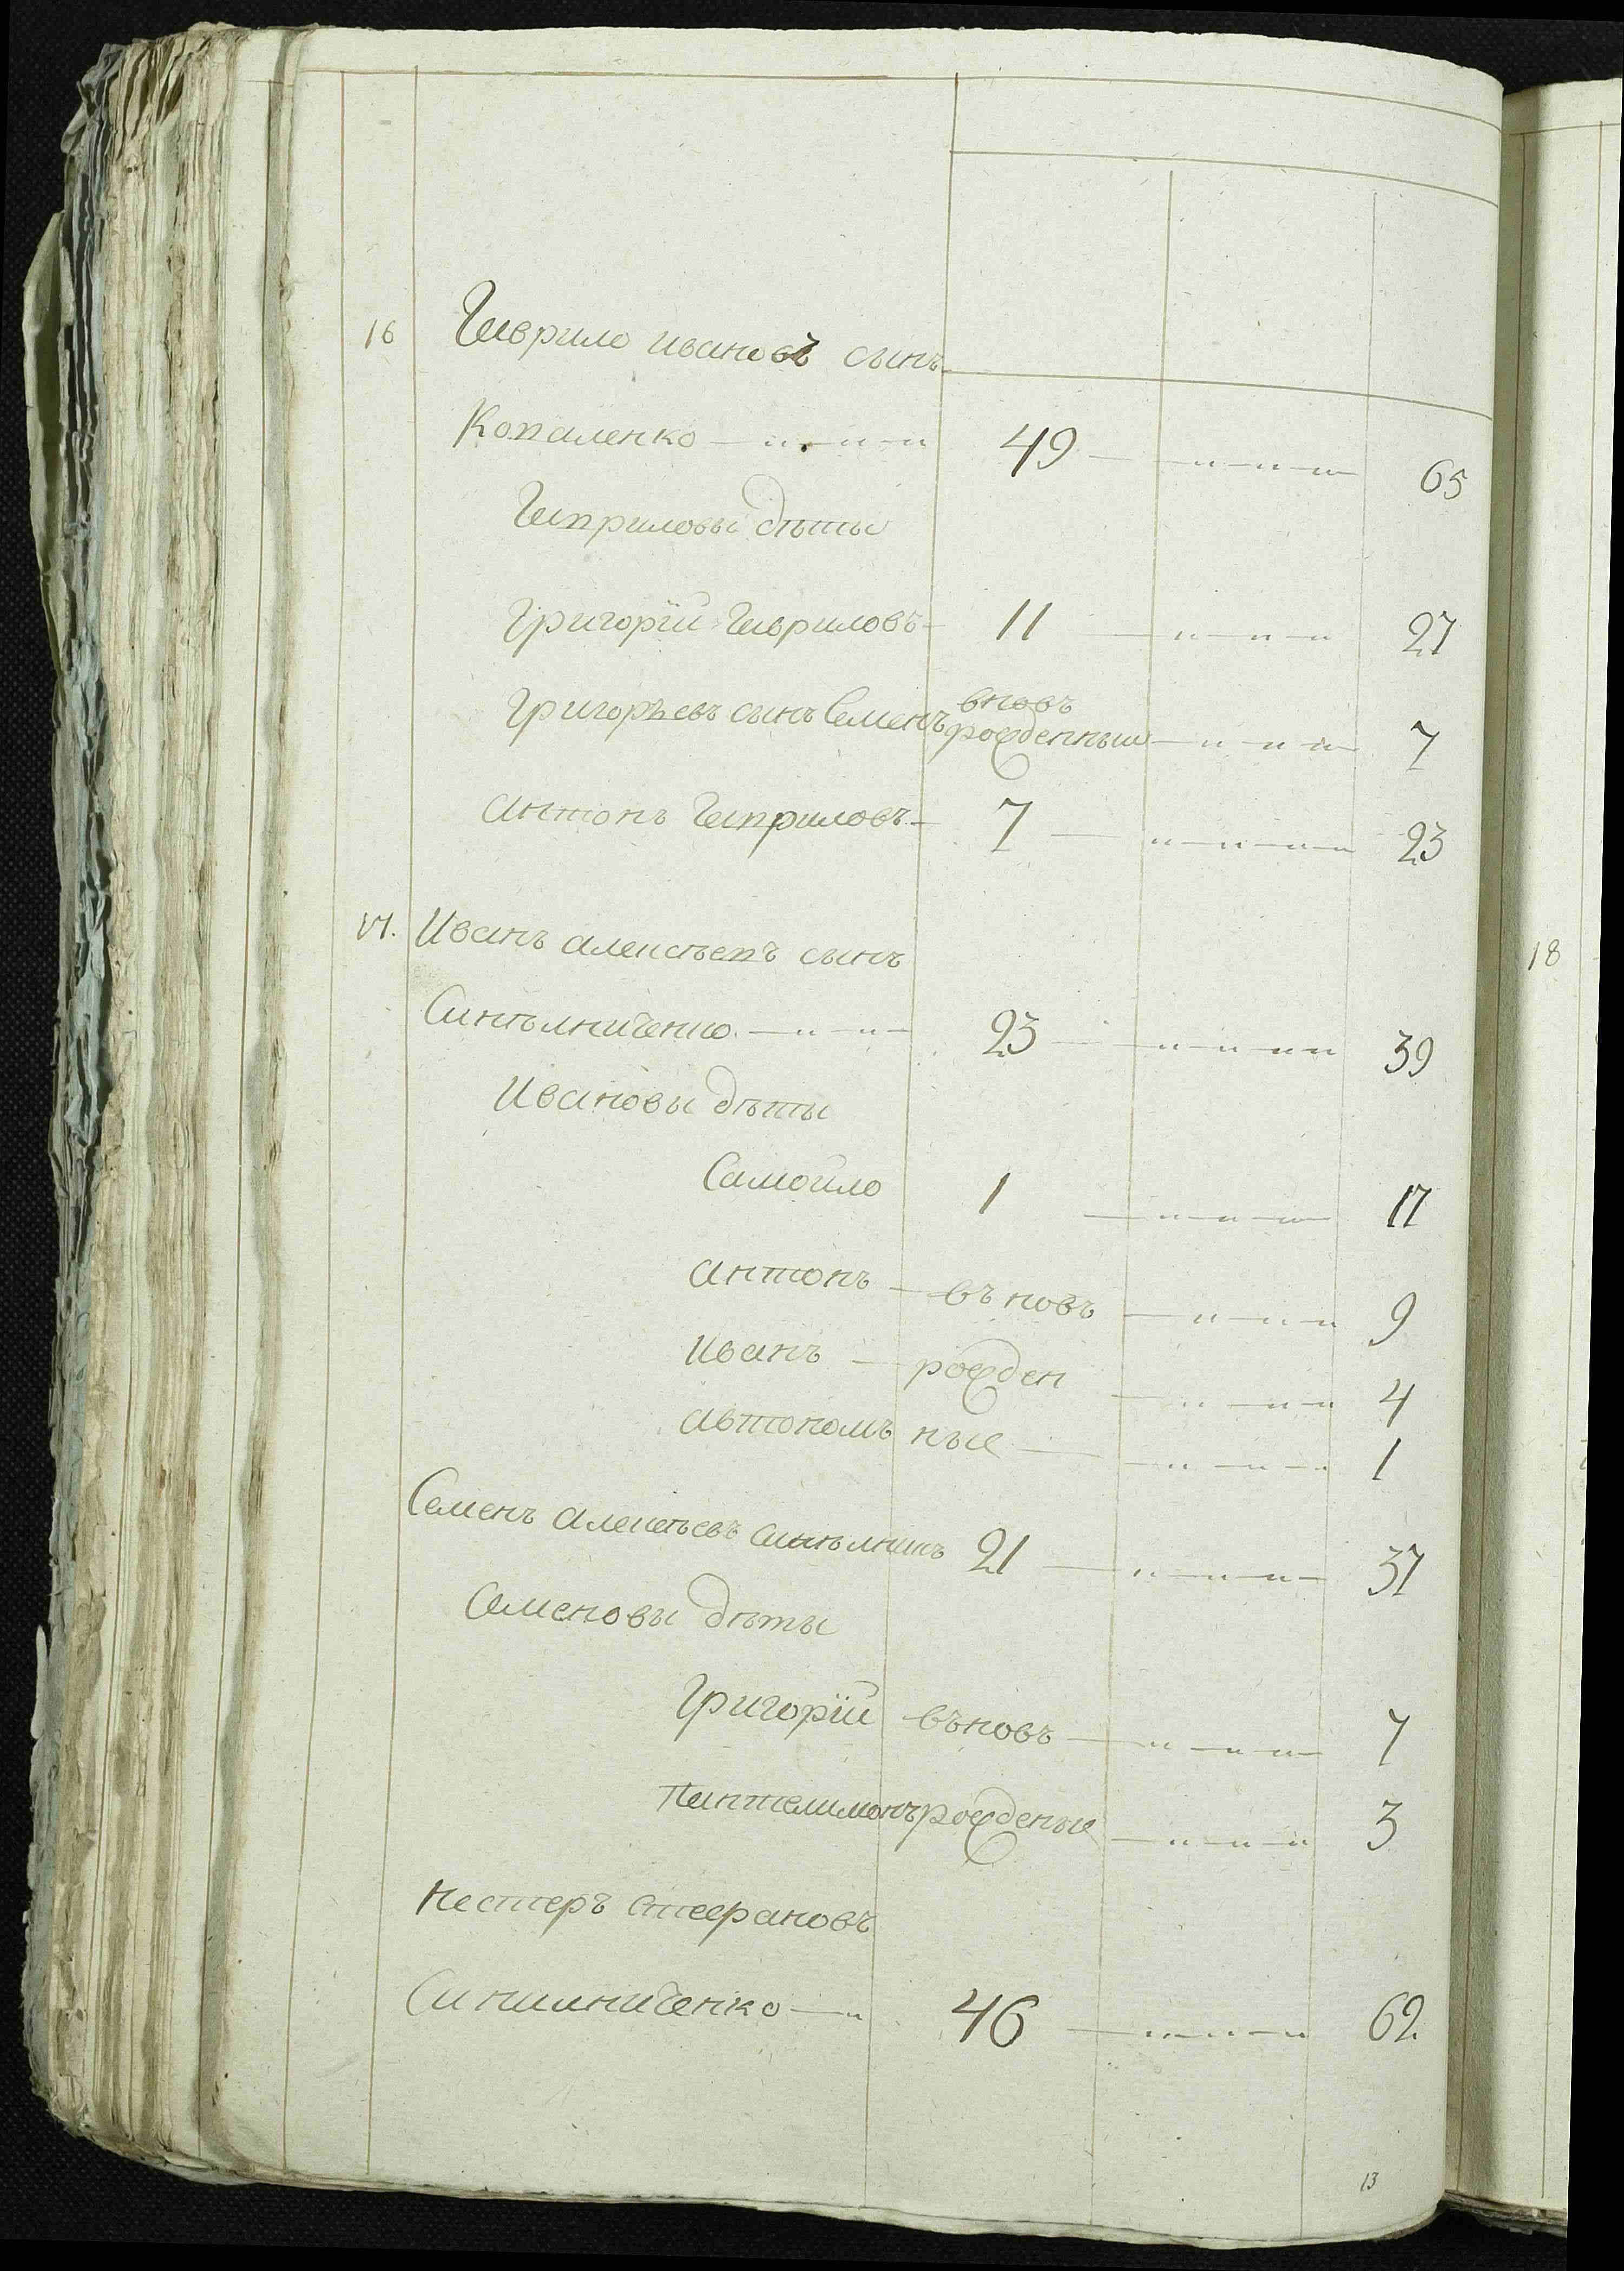 16 Гаврило ивановъ сынъ
Копаленко — " — " — " 49 — " — " — " 65
Гавриловы дѣты
Григорїй Гавриловъ — 11 — " — " — " 27
Григорьевъ сынъ Семенъ вновь рожденный — " — " — " 7
антонъ Гавриловъ — 7 — " — " — " 23
17. Иванъ алексѣевъ сынъ
Синѣлниченко — " — " 23 — " — " — " 39
Ивановы дѣты
Самойло 1 — " — " — " 17
антонъ — въновь — " — " — " 9
иванъ — рожден — " — " — " 4
автономъ ные — " — " — " 1
Семенъ алексѣевъ синѣлникъ 21 — " — " — " 37
Семеновы дѣты
Григорїй въновь — " — " — " 7
Пантелимонъ рожденые — " — " — " 3
Нестеръ стефановъ
Синилниченко — " 46 — " — " — " 62
13
18